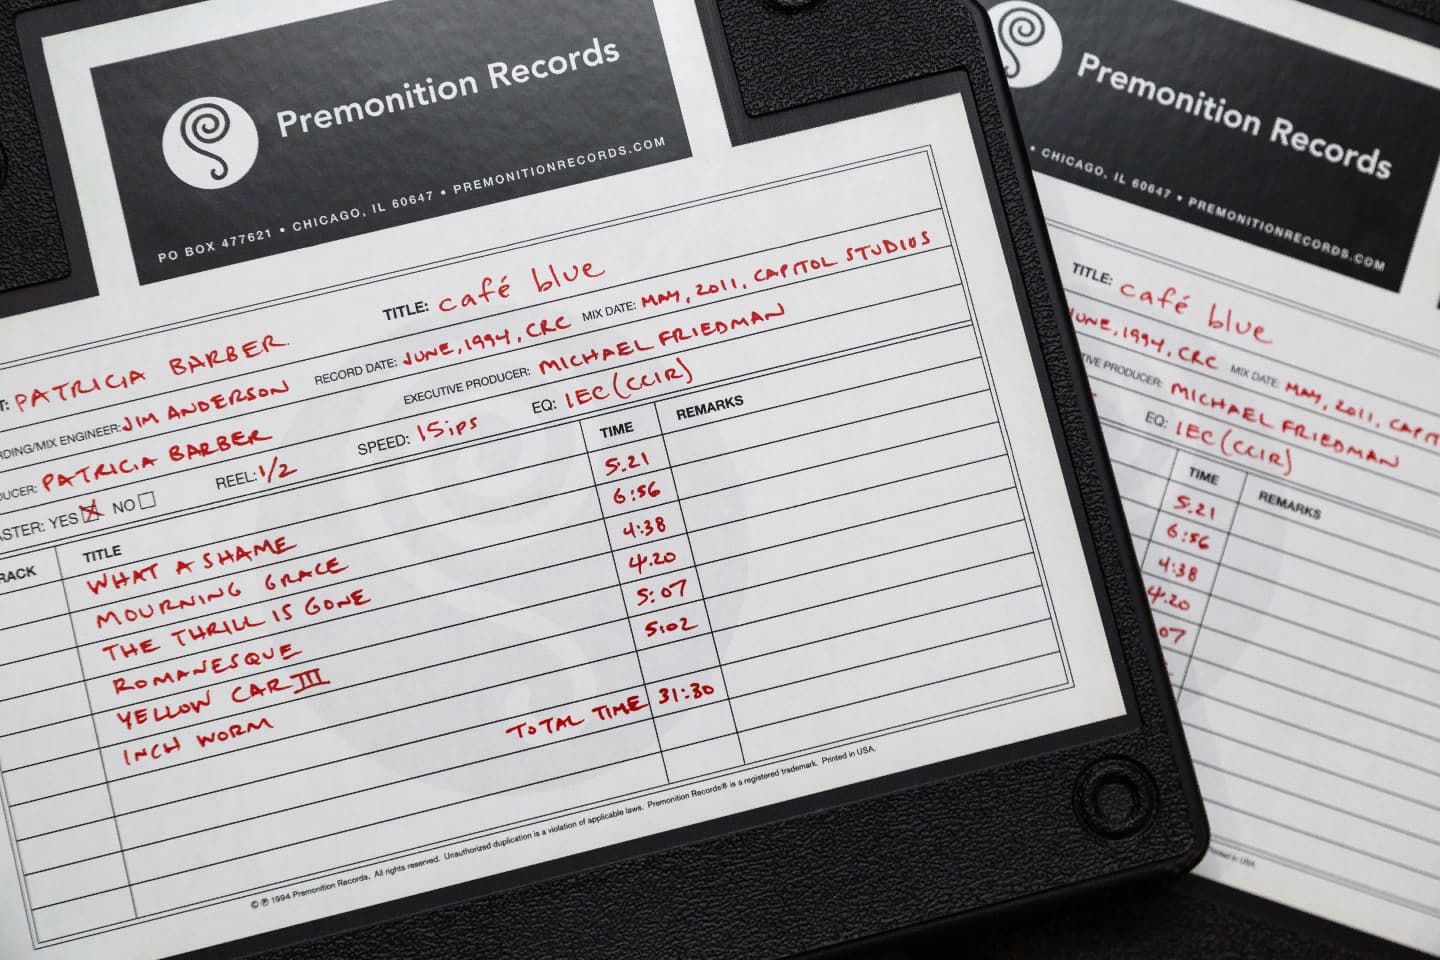 Premonition Records
PO BOX 477621 • CHICAGO, IL 60647 • PREMONITIONRECORDS.COM
T: PATRICIA BARBER TITLE: café blue
RDING/MIX ENGINEER: JIM ANDERSON RECORD DATE: JUNE, 1994, CRC MIX DATE: MAY, 2011, CAPITOL STUDIOS
DUCER: PATRICIA BARBER EXECUTIVE PRODUCER: MICHAEL FRIEDMAN
ASTER: YES NO REEL: 1/2 SPEED: 15ips EQ: IEC (CCIR)
RACK TITLE TIME REMARKS
WHAT A SHAME 5.21
MOURNING GRACE 6:56
THE THRILL IS GONE 4:38
ROMANESQUE 4.20
YELLOW CAR III 5:07
INCH WORM 5:02
TOTAL TIME 31:30
© ℗ 1994 Premonition Records. All rights reserved. Unauthorized duplication is a violation of applicable laws. Premonition Records® is a registered trademark. Printed in USA.
Premonition Records
• CHICAGO, IL 60647 • PREMONITIONRECORDS.COM
TITLE: café blue
JUNE, 1994, CRC MIX DATE: MAY, 2011, CAPIT
TIVE PRODUCER: MICHAEL FRIEDMAN
EQ: IEC (CCIR)
TIME REMARKS
5.21
6:56
4:38
4.20
07
in USA.